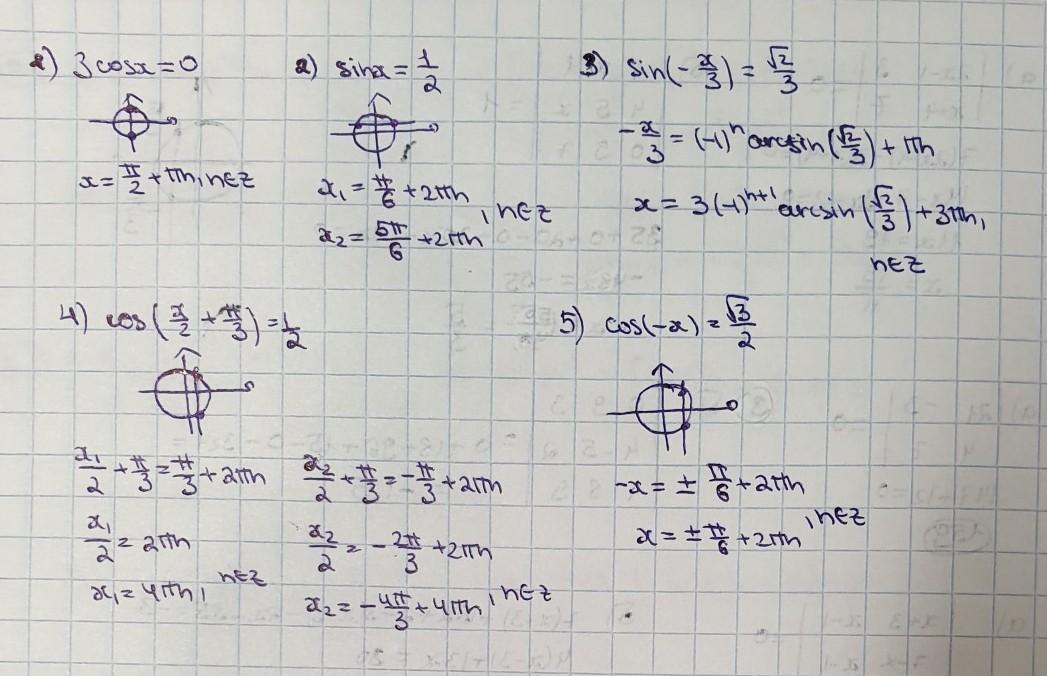 1) 3cosx=0
x = π/2 + πn, n∈Z
2) sinx = 1/2
x₁ = π/6 + 2πn
x₂ = 5π/6 + 2πn , n∈Z
3) sin(-x/3) = √2/3
-x/3 = (-1)ⁿ arcsin(√2/3) + πn
x = 3(-1)ⁿ⁺¹ arcsin(√2/3) + 3πn,
n∈Z
4) cos(x/2 + π/3) = 1/2
x₁/2 + π/3 = π/3 + 2πn
x₁/2 = 2πn
x₁ = 4πn, n∈Z
x₂/2 + π/3 = -π/3 + 2πn
x₂/2 = -2π/3 + 2πn
x₂ = -4π/3 + 4πn, n∈Z
5) cos(-x) = √3/2
-x = ± π/6 + 2πn
x = ± π/6 + 2πn , n∈Z